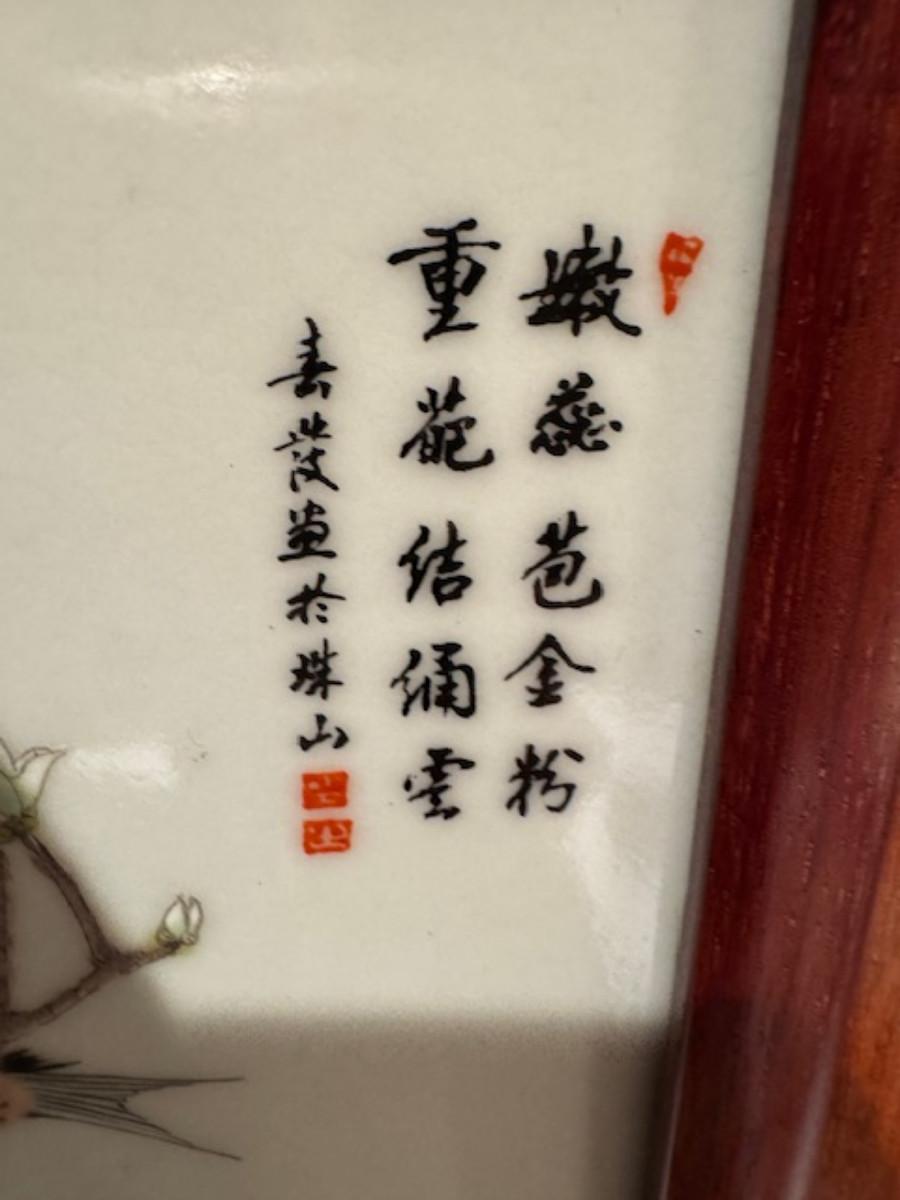 嫩蕊苞金粉
重葩結繡雲
畫於珠山